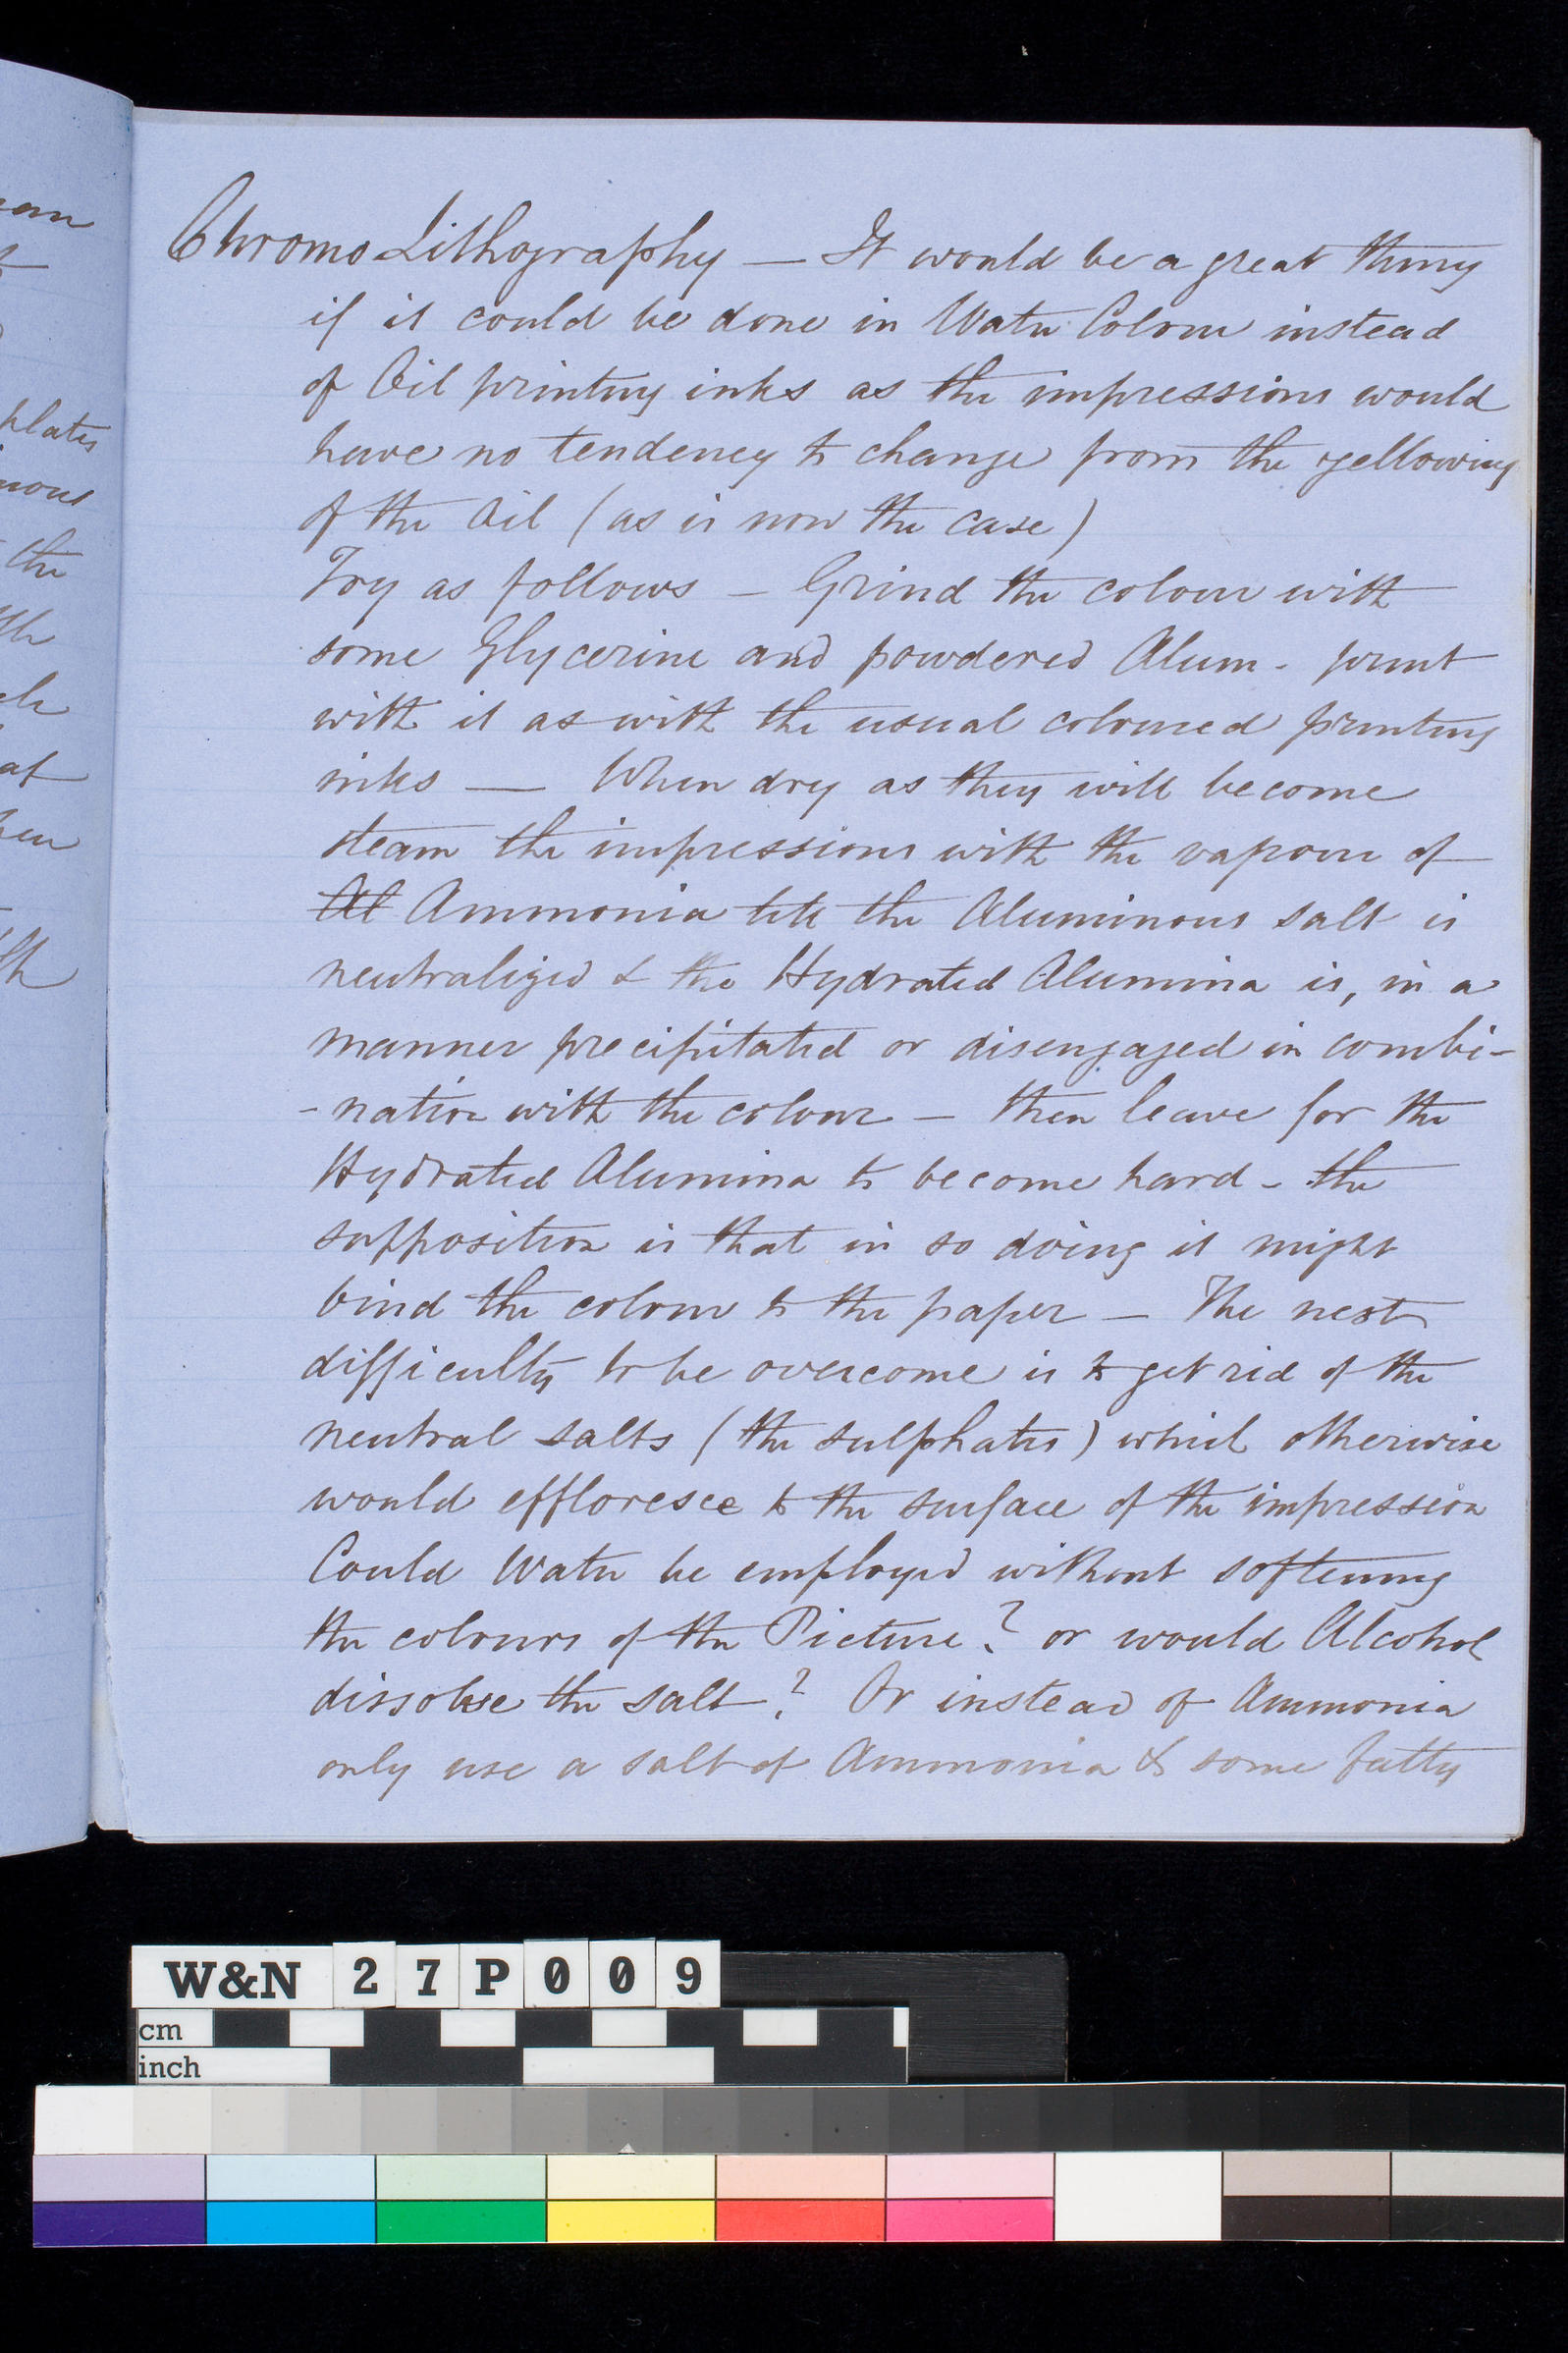 Chromo Lithography — It would be a great thing
if it could be done in Water Colour instead
of Oil printing inks as the impressions would
have no tendency to change from the yellowing
of the Oil (as is now the case)
Try as follows — Grind the colour with
some Glycerine and powdered Alum - print
with it as with the usual coloured printing
inks — When dry as they will become
steam the impressions with the vapour of
Al Ammonia till the Aluminous salt is
neutralized & the Hydrated Alumina is, in a
manner precipitated or disengaged in combi-
-nation with the colour — then leave for the
Hydrated Alumina to become hard - the
supposition is that in so doing it might
bind the colour to the paper — The next
difficulty to be overcome is to get rid of the
neutral salts (the sulphates) which otherwise
would effloresce to the surface of the impression
Could Water be employed without softening
the colours of the Picture? or would Alcohol
dissolve the salt? Or instead of Ammonia
only use a salt of Ammonia & some fatty
plates
the
W&N 27P009
cm
inch